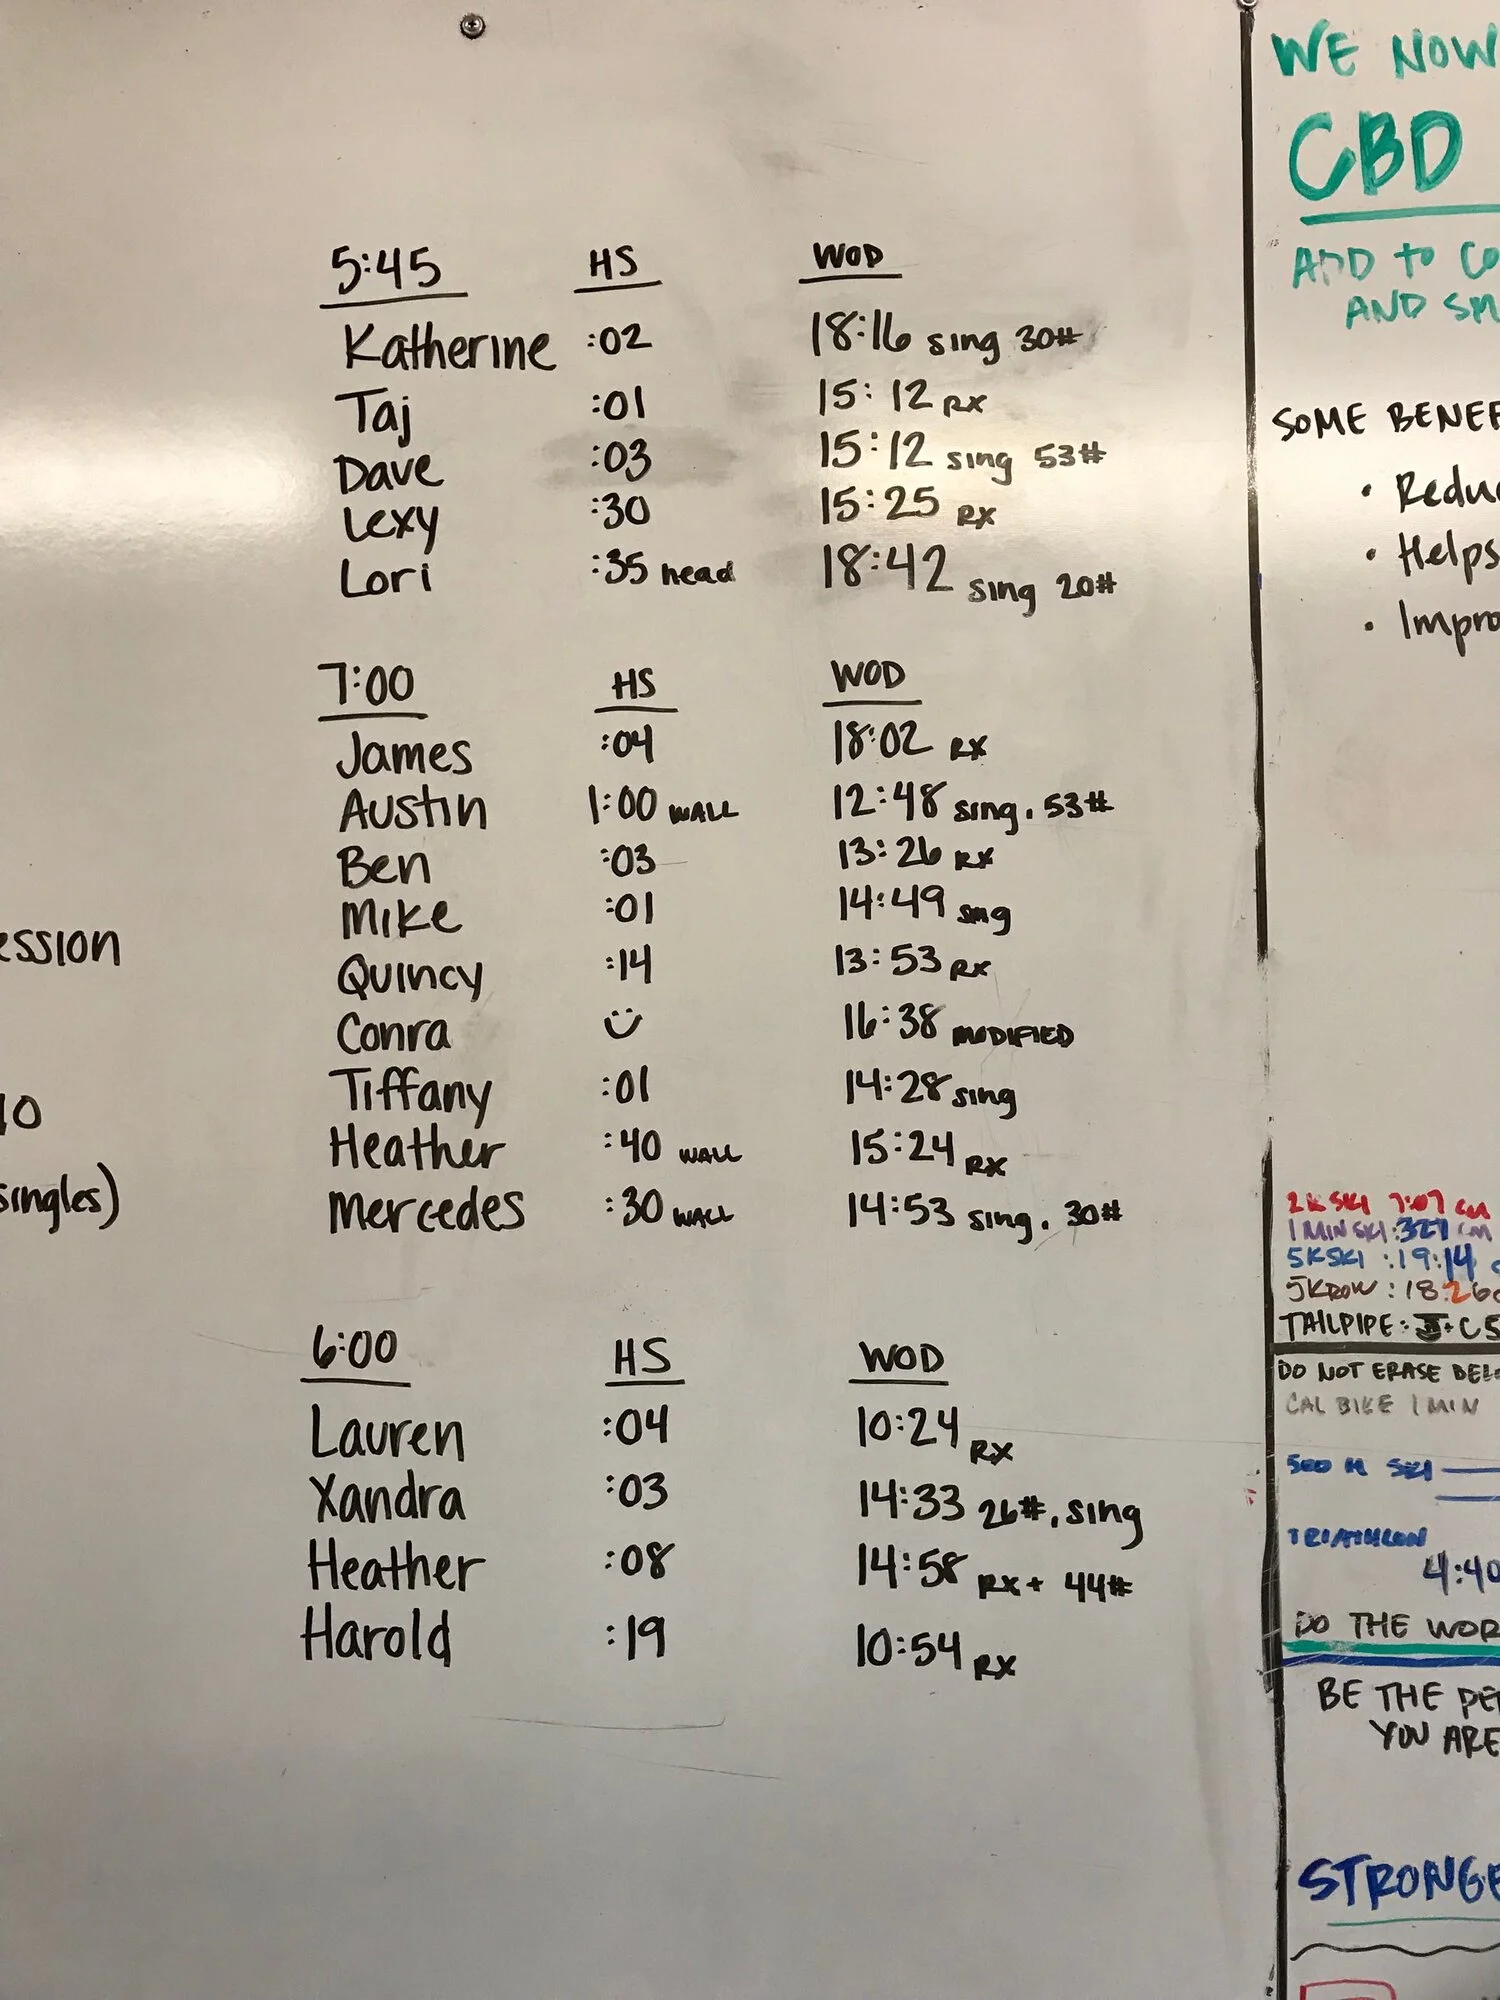 5:45 HS WOD
Katherine :02 18:16 sing 30#
Taj :01 15:12 RX
Dave :03 15:12 sing 53#
Lexy :30 15:25 RX
Lori :35 head 18:42 sing 20#
7:00 HS WOD
James :04 18:02 RX
Austin 1:00 WALL 12:48 sing. 53#
Ben :03 13:26 RX
Mike :01 14:49 sing
Quincy :14 13:53 RX
Conra 16:38 MODIFIED
Tiffany :01 14:28 sing
Heather :40 WALL 15:24 RX
Mercedes :30 WALL 14:53 sing. 30#
6:00 HS WOD
Lauren :04 10:24 RX
Xandra :03 14:33 26#. sing
Heather :08 14:58 RX+ 44#
Harold :19 10:54 RX
ession
10
singles)
WE NOW
CBD
ADD to CO
AND SM
SOME BENEF
• Reduc
• Helps
• Impro
2K SKI 7:07 CM
1 MIN SKI: 327 CM
5K SKI :19:14
5K ROW : 18:26
TAILPIPE: + C 5
DO NOT ERASE BEL
CAL BIKE 1 MIN
500 M SKI
TRIATHLON
4:40
DO THE WOR
BE THE PE
YOU ARE
STRONGE